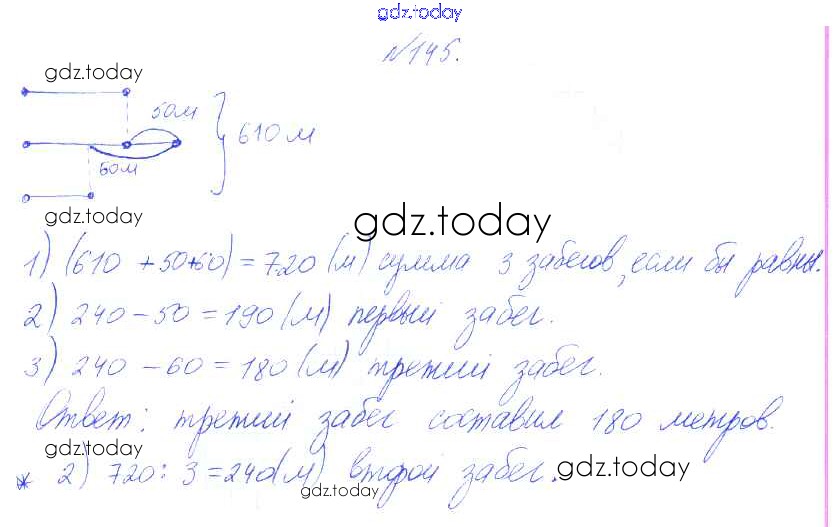 gdz.today
№145.
gdz.today
50м
610м
60м
gdz.today
gdz.today
1) (610 + 50+60) = 720 (м) сумма 3 забегов, если бы равны.
2) 240 - 50 = 190 (м) первый забег.
3) 240 - 60 = 180 (м) третий забег.
Ответ: третий забег составил 180 метров.
gdz.today
gdz.today
* 2) 720 : 3 = 240(м) второй забег.
gdz.today